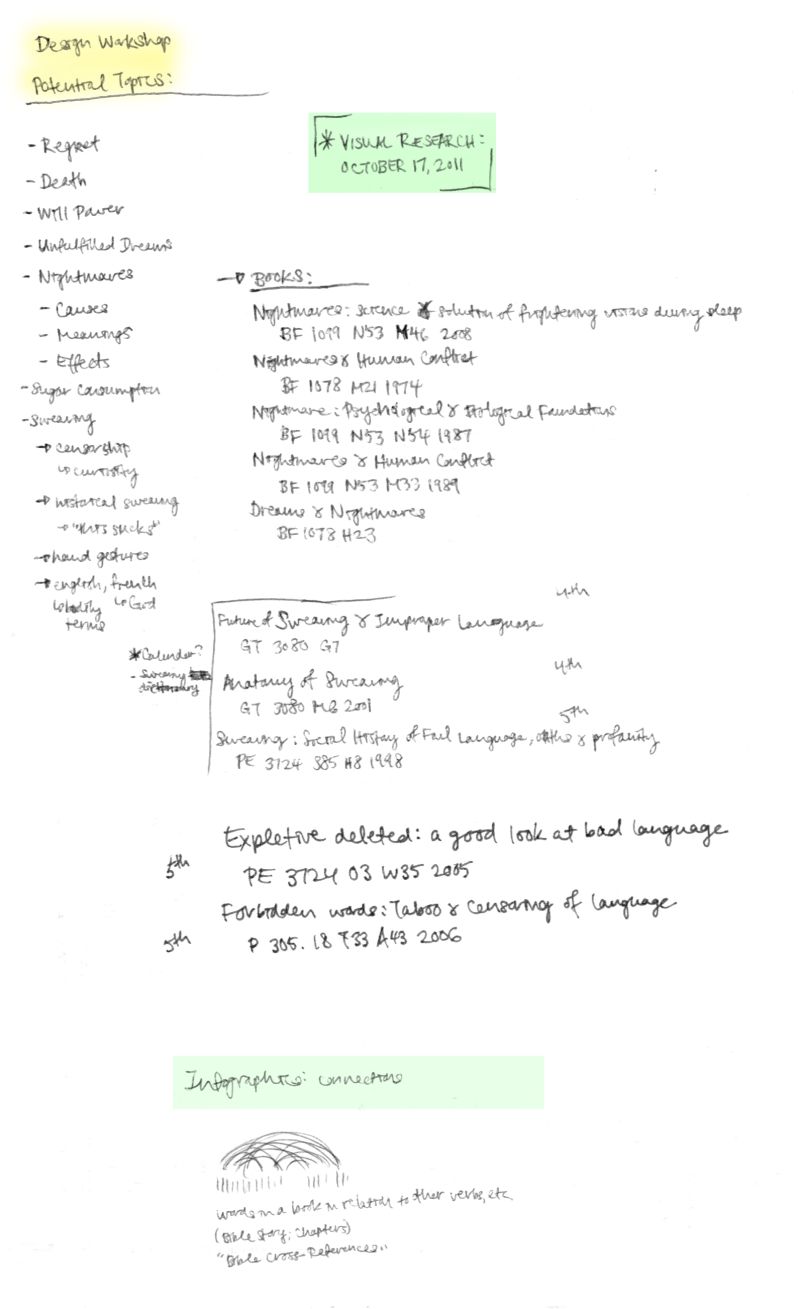 Design Workshop
Potential Topics:
- Regret
- Death
- Will Power
- Unfulfilled Dreams
- Nightmares
- Causes
- Meanings
- Effects
- Sugar Consumption
- Swearing
→ censorship
↳ curiosity
→ historical swearing
→ "this sucks"
→ hand gestures
→ english, french
↳ bodily terms
↳ God
* Calendar?
- Swearing
dictionary
* VISUAL RESEARCH:
OCTOBER 17, 2011
→ BOOKS:
Nightmares: science & solution of frightening visions during sleep
BF 1099 N53 M46 2008
Nightmares & Human Conflict
BF 1078 M21 1974
Nightmare: Psychological & Biological Foundations
BF 1099 N53 N54 1987
Nightmares & Human Conflict
BF 1099 N53 M33 1989
Dreams & Nightmares
BF 1078 H23
4th
Future of Swearing & Improper Language
GT 3080 G7
4th
Anatomy of Swearing
GT 3080 M6 2001
5th
Swearing: Social History of Foul Language, oaths & profanity
PE 3724 S85 H8 1998
Expletive deleted: a good look at bad language
5th
PE 3724 O3 W35 2005
Forbidden words: Taboo & Censoring of language
5th
P 305.18 T33 A43 2006
Infographics: connections
words in a book in relation to other verbs, etc
(Bible Story; Chapters)
"Bible Cross-References"